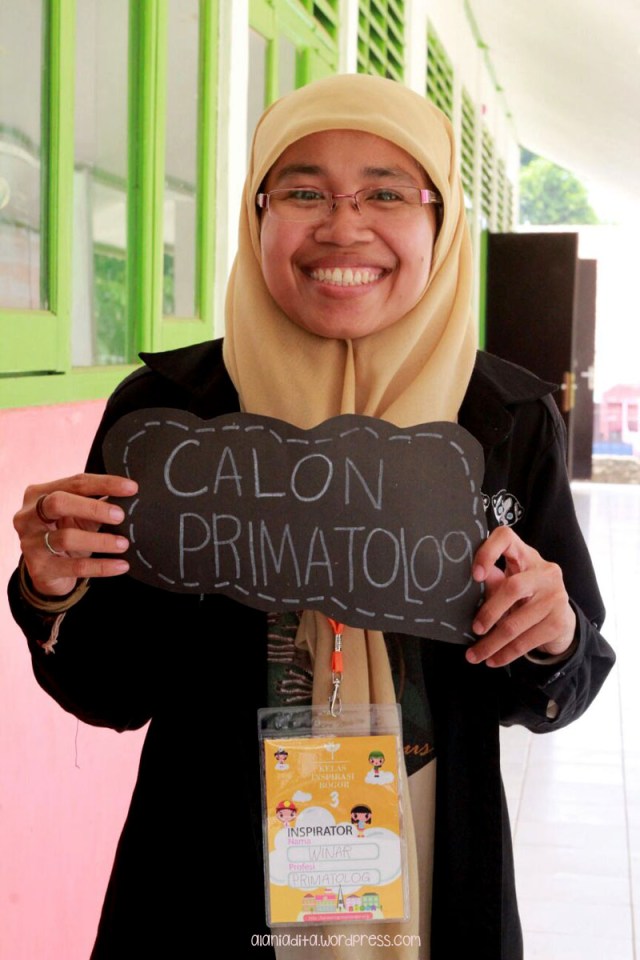 CALON
PRIMATOLOG
KELAS
INSPIRASI
BOGOR
3
INSPIRATOR
Nama
WINAR
Profesi
PRIMATOLOG
alaniadita.wordpress.com